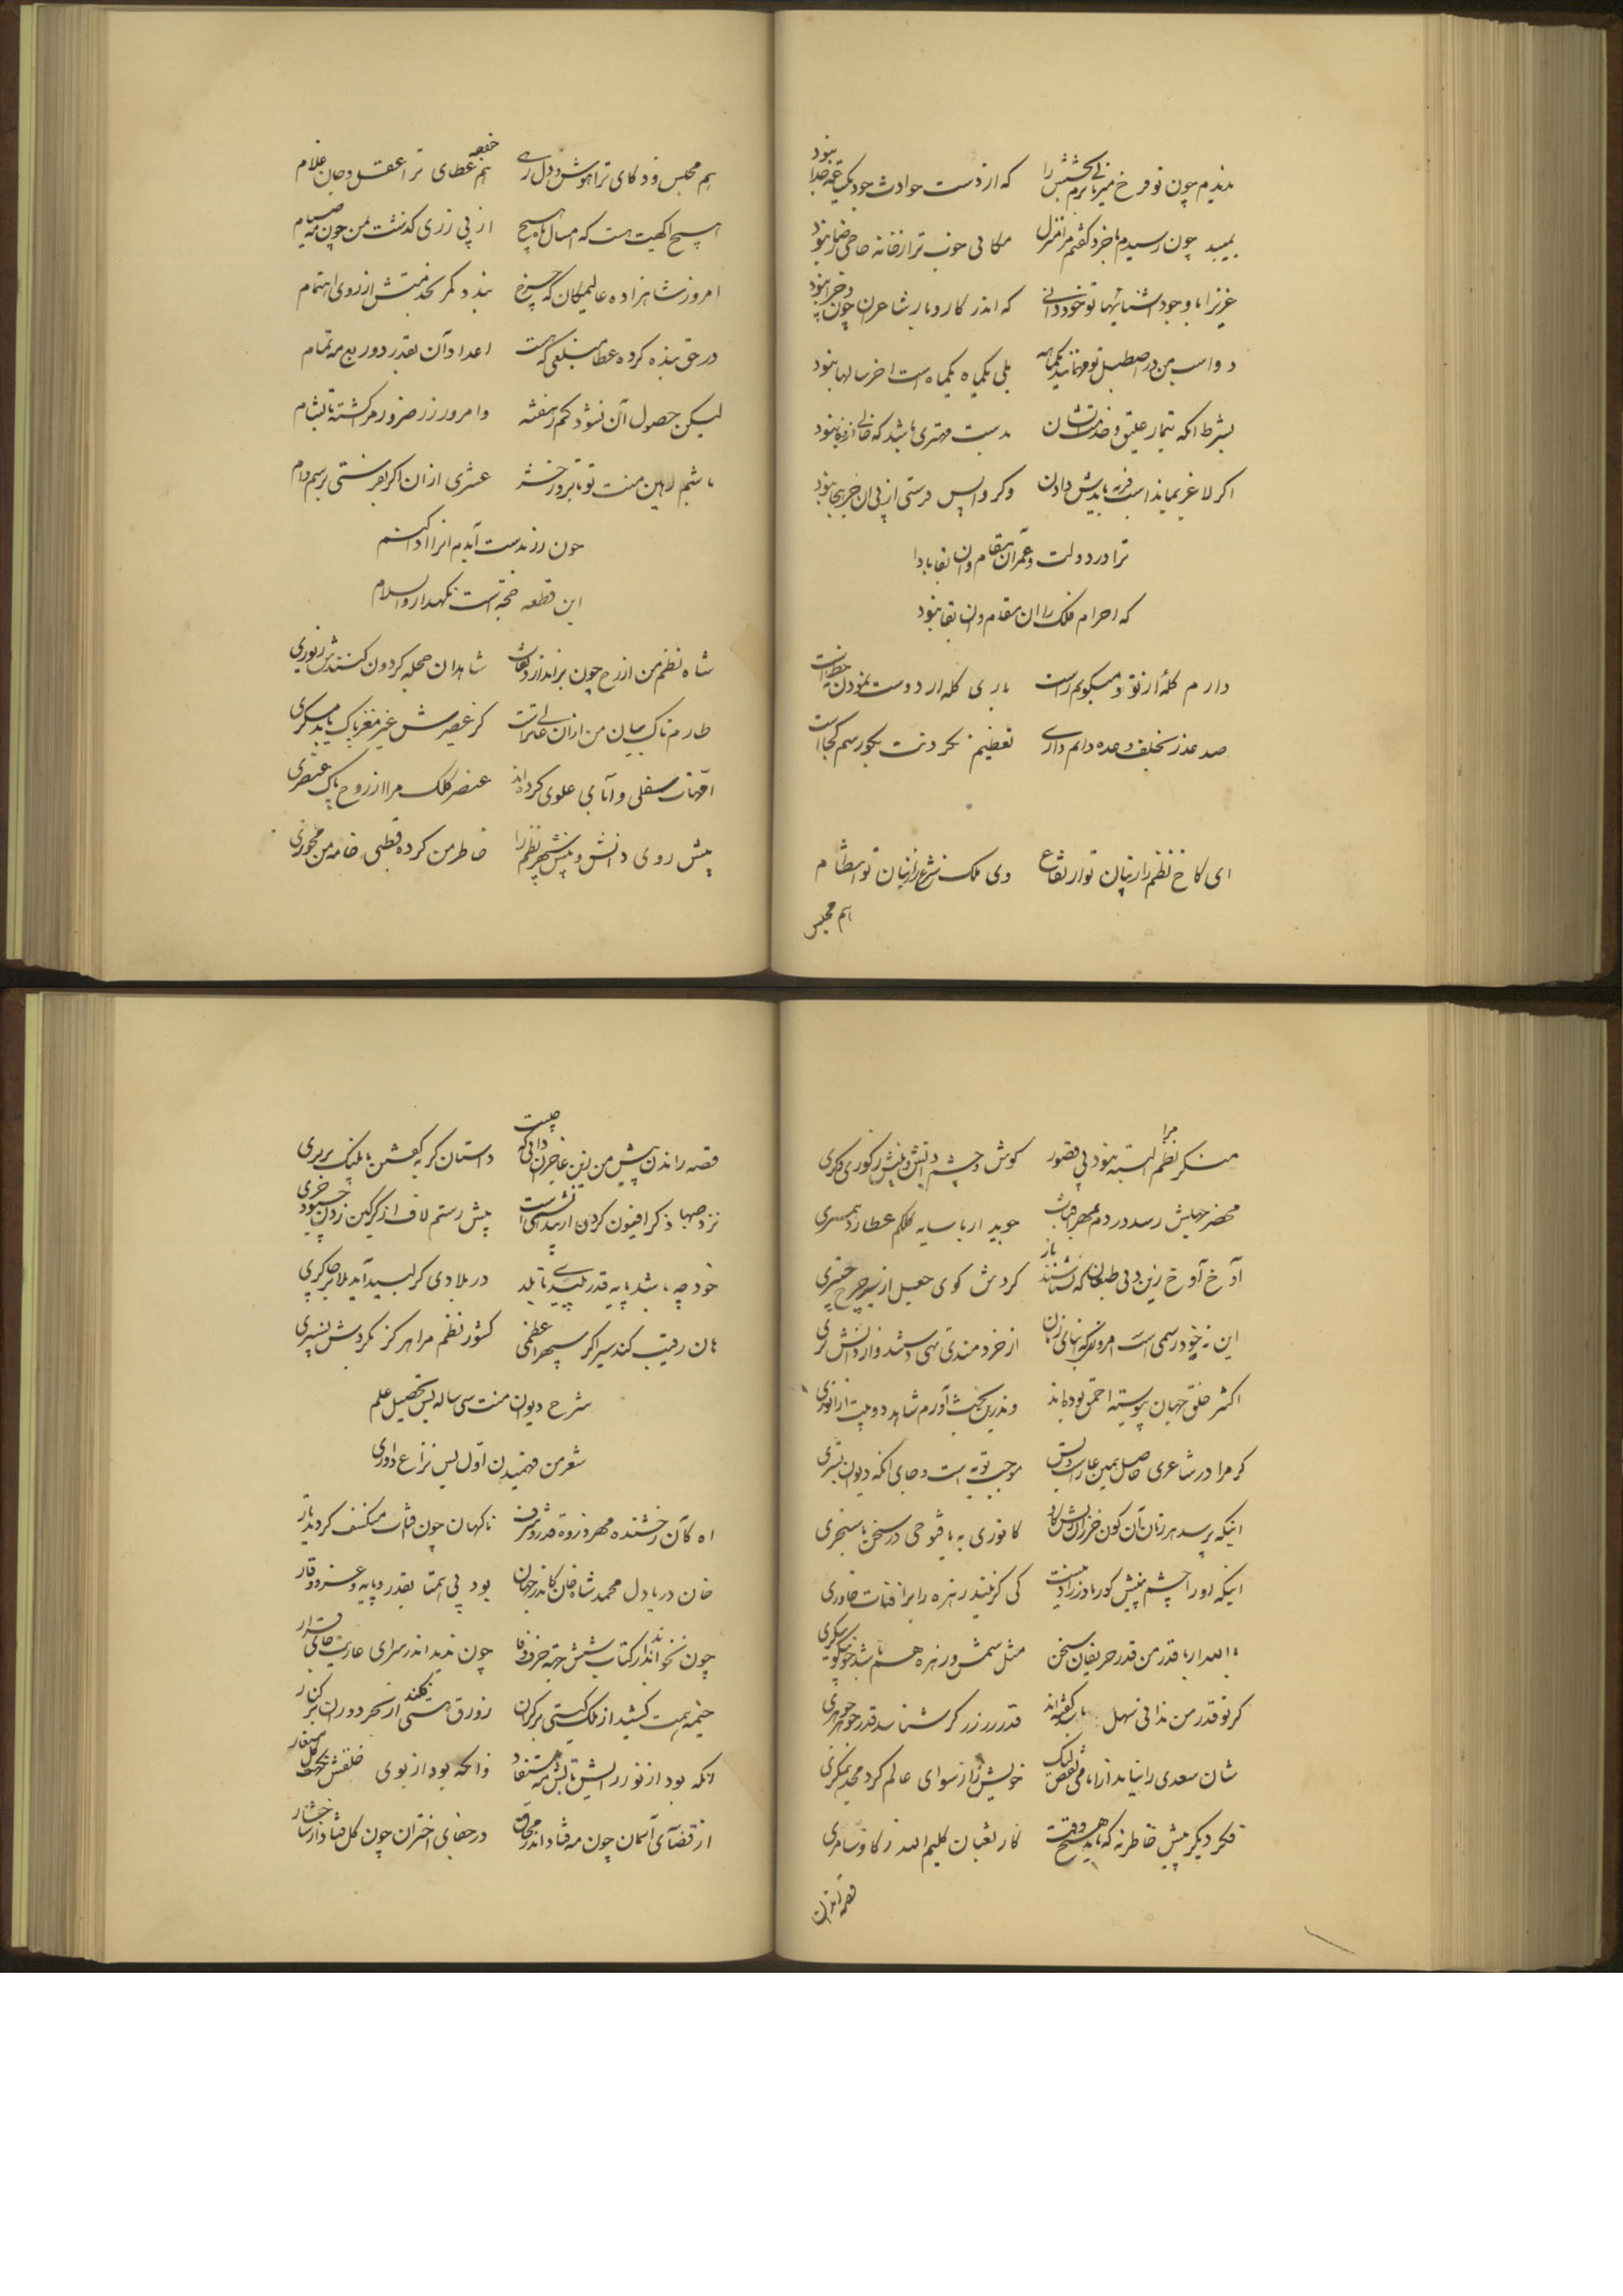 ندیدم چون تو فرخ میزبانی بخشش را که از دست حوادث خود
چون رسیدم با خرد گفتم مرا منزل مکانی خوب تر از خانه حاجی رضا نبود
عزیزا با وجود آشنائیها تو خود دانی که اندر کار و بار شاعران چون و چرا نبود
دو اسب من در اصطبل تو مهمانند یکماهه بلی یکماه یکماه است اخر سالها نبود
بشرط انکه تیمار علیق و خدمتشان بدست مهتری باشد که خالی از وفا نبود
اگر لاغر بماند اسب فربه بایدش دادن وگر واپس فرستی از پی آن خر بجا نبود
ترا در دولت و عمر آن مقام و آن بقا بادا
که اجرام فلک را آن مقام و آن بقا نبود
دارم گلهٔ از تو و میگویم راست باری گله از دوست نمودن نه خطاست
صد عذر تخلف وعده دایم داری تعظیم نکردنت بگو رسم کجاست
ای کاخ نظم را ز بیان تو ارتفاع وی ملک شرع را ز بنان تو انتظام
هم مجلس
هم مجلس و ذکای ترا هوش و دل رهی هم خفیه عطای ترا عقل و جان غلام
هیچ آگهیت هست که امسال هیچ هیچ از بی زری گذشت بمن چون مه صیام
امروز شاهزاده عالیمکان که چرخ بندد کمر بخدمتش از روی اهتمام
در حق بنده کرده عطا مبلغی که هست اعداد آن بقدر دو ربع مه تمام
لیکن حصول آن نشود کم ز هفته وامروز زر ضرور مرا گشته تا بشام
باشم رهین منت تو تا بروز حشر عشری از آن اگر بفرستی برسم وام
چون زر بدست آیدم آنرا ادا کنم
این قطعه حجت است نگهدار والسلام
شاه نظم من از رخ چون براندازد نقاب شاهدان حجله گردون کنندش زیوری
طارم تاک بیان من از آن عالی‌تر است کز عصیرش غیر مغز پاک یابد مسکری
امهات سفلی و آبای علوی کرده‌اند عنصر کلک مرا از روح پاک عنصری
پیش روی دانش و بینش سپهر نظم را خاطر من کرده قطبی خامه من محوری
منکر نظم مرا البته نبود بی قصور گوش و چشم دانش و بینش ز کوری و کری
محضر جهلش رسد در دم بمهر جوید ار با سایه کلکم عطارد همسری
آوخ آوخ زین دنی طبعان که نشناسند باز گردش گوی جعل از سیر چرخ چنبری
این نه خود رسمی است امروزی که ابنای زمان از خردمندی تهی دستند و از دانش بری
اکثر خلق جهان پیوسته احمق بوده‌اند وندرین بحث آورم شاهد دو بیت از انوری
گر مرا در شاعری حاصل همین عار است و بس موجب توبه است و جای آنکه دیوان بستری
اینکه پرسد هر زمان آن کون خر زان ریش گاو کانوری به یا فتوحی در سخن یا سنجری
اینکه او را چشم بینش کور مادرزاد نیست کی گزیند زهره را بر افتاب خاوری
بالله ار با قدر من قدر حریفان سخن مثل شمس و زهره هم باشد چو نیکو بنگری
گر تو قدر من ندانی سهل باشد گفته‌اند قدر زر زرگر شناسد قدر گوهر گوهری
شان سعدی را نیابد از امامی نقص لیک خویش را رسوای عالم کرد مجد همگری
فکر دیگر پیش خاطر نه که باید هیچ وقت کار ثعبان کلیم الله ز گاو سامری
قصه راندن
قصه راندن پیش من زین عاجزان دانی که چیست داستان گربه گفتن با پلنگ بربری
نزد صهبا ذکر افیون کردن از بی نشئه‌ایست پیش رستم لاف از گرگین زدن بیهوده خری
خود چه باشد پایه قدر لبید بی بلد در بلادی گر لبید آید بلا بر چاکری
هان رقیب کند سیر اگر سپهر اعظمی کشور نظم مرا هرگز نکردش نسپری
شرح دیوان منت سی ساله بس تحصیل علم
شعر من فهمیدن اول پس نزاع و داوری
اه کان رخشنده مهر ذروه قدر و شرف ناگهان چون افتاب منکسف گردید تار
خان دریادل محمد شاه خان کاندر جهان بود بی همتا بقدر و پایه و عز و وقار
چون نخواند اندر کتاب شش جهت حرف وفا چون ندید اندر سرای عاریت جای قرار
خیمه همت کشید از ملک گیتی بر کران زورق هستی فکند از بحر دوران بر کنار
انکه بود از نور رایش تابش مه مستفاد وانکه بود از بوی خلقش نکهت گل مستعار
از قضای آسمان چون مه فتاد اندر محاق در جفای اختران چون گل فتاد از شاخسار